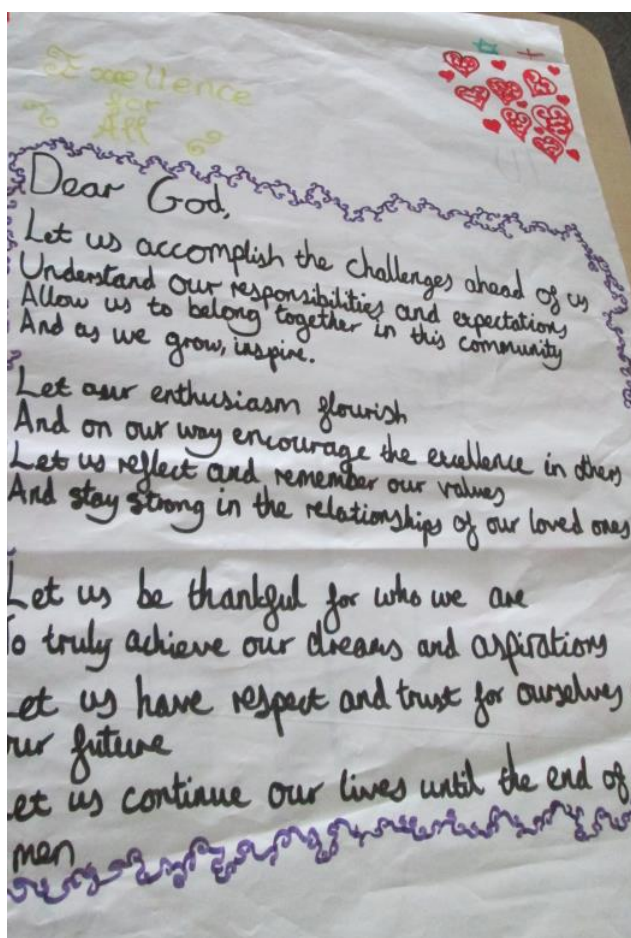 Excellence
for
All
Dear God,
Let us accomplish the challenges ahead of us
Understand our responsibilities and expectations
Allow us to belong together in this community
And as we grow, inspire.
Let our enthusiasm flourish
And on our way encourage the excellence in others
Let us reflect and remember our values
And stay strong in the relationships of our loved ones
Let us be thankful for who we are
o truly achieve our dreams and aspirations
Let us have respect and trust for ourselves
ur future
et us continue our lives until the end of
men